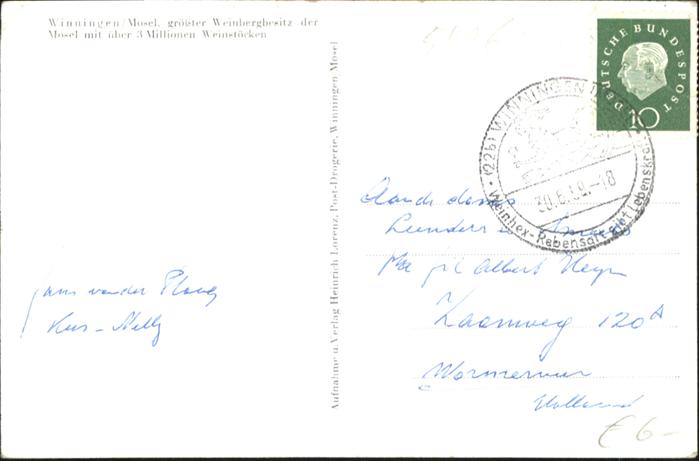 Winningen/Mosel, größter Weinbergbesitz der
Mosel mit über 3 Millionen Weinstöcken
DEUTSCHE BUNDESPOST
10
(22b) WINNINGEN
30.6.-18
Weinhex-Rebensaft gibt Lebenskraft
Aufnahme u. Verlag Heinrich Lorenz, Post-Drogerie, Winningen Mosel
Aan de dames
Albert Heijn
Zaanweg 120A
Wormerveer
Holland
van der Ploeg
Kus - Nelly
€ 6-